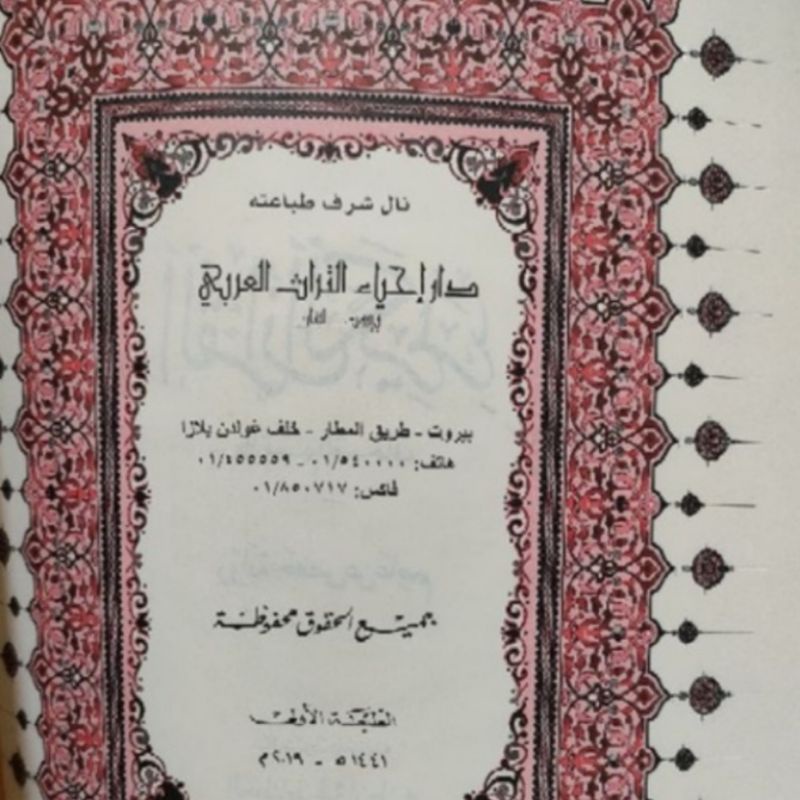 نال شرف طباعته
دار إحياء التراث العربي
بيروت - لبنان
بيروت - طريق المطار - خلف غولدن بلازا
هاتف: ٠١/٥٤٠٠٠٠ - ٠١/٤٥٥٥٥٩
فاكس: ٠١/٨٥٠٧١٧
جميع الحقوق محفوظة
الطبعة الأولى
١٤٤١ ه - ٢٠١٩ م